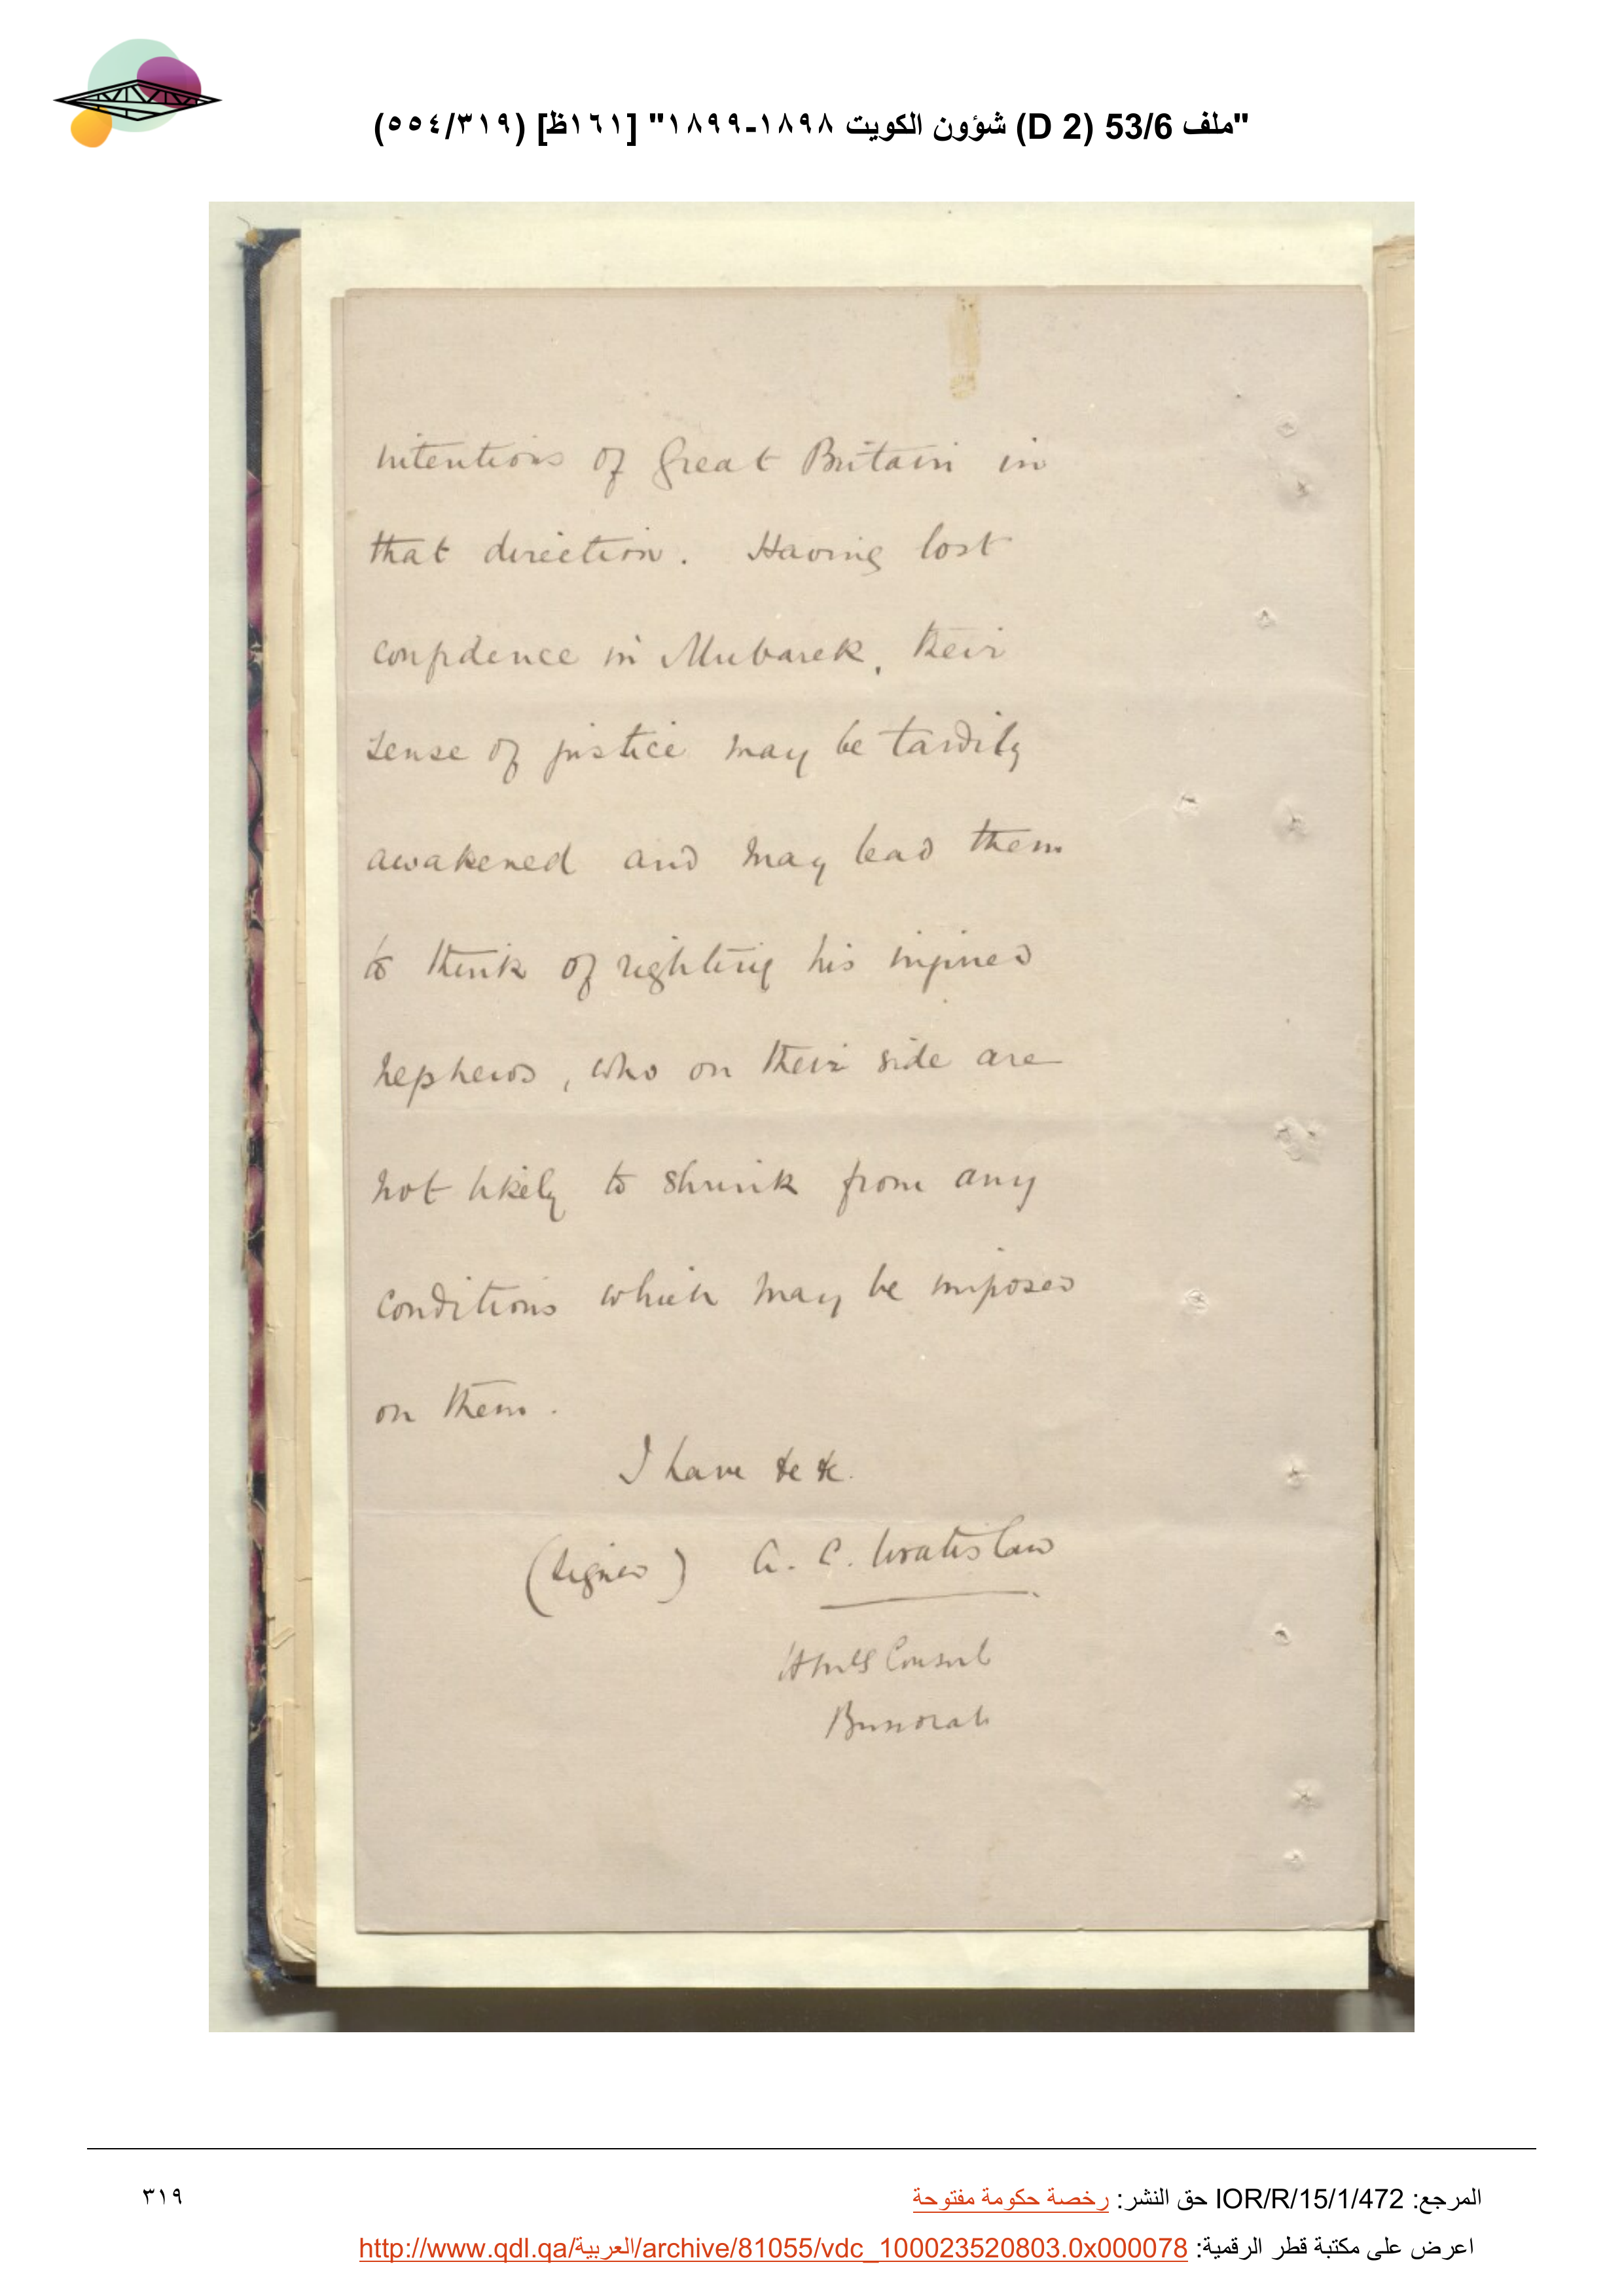 "ملف 53/6 (D 2) شؤون الكويت ١٨٩٨-١٨٩٩" [١٦١ظ] (٥٥٤/٣١٩)
intentions of Great Britain in
that direction. Having lost
confidence in Mubarek, their
sense of justice may be tardily
awakened and may lead them
to think of righting his injured
nephews, who on their side are
not likely to shrink from any
conditions which may be imposed
on them.
I have &c &c.
(Signed) A. C. Wratislaw
HBMs Consul
Bussorah
المرجع: IOR/R/15/1/472 حق النشر: رخصة حكومة مفتوحة
٣١٩
اعرض على مكتبة قطر الرقمية: http://www.qdl.qa/العربية/archive/81055/vdc_100023520803.0x000078